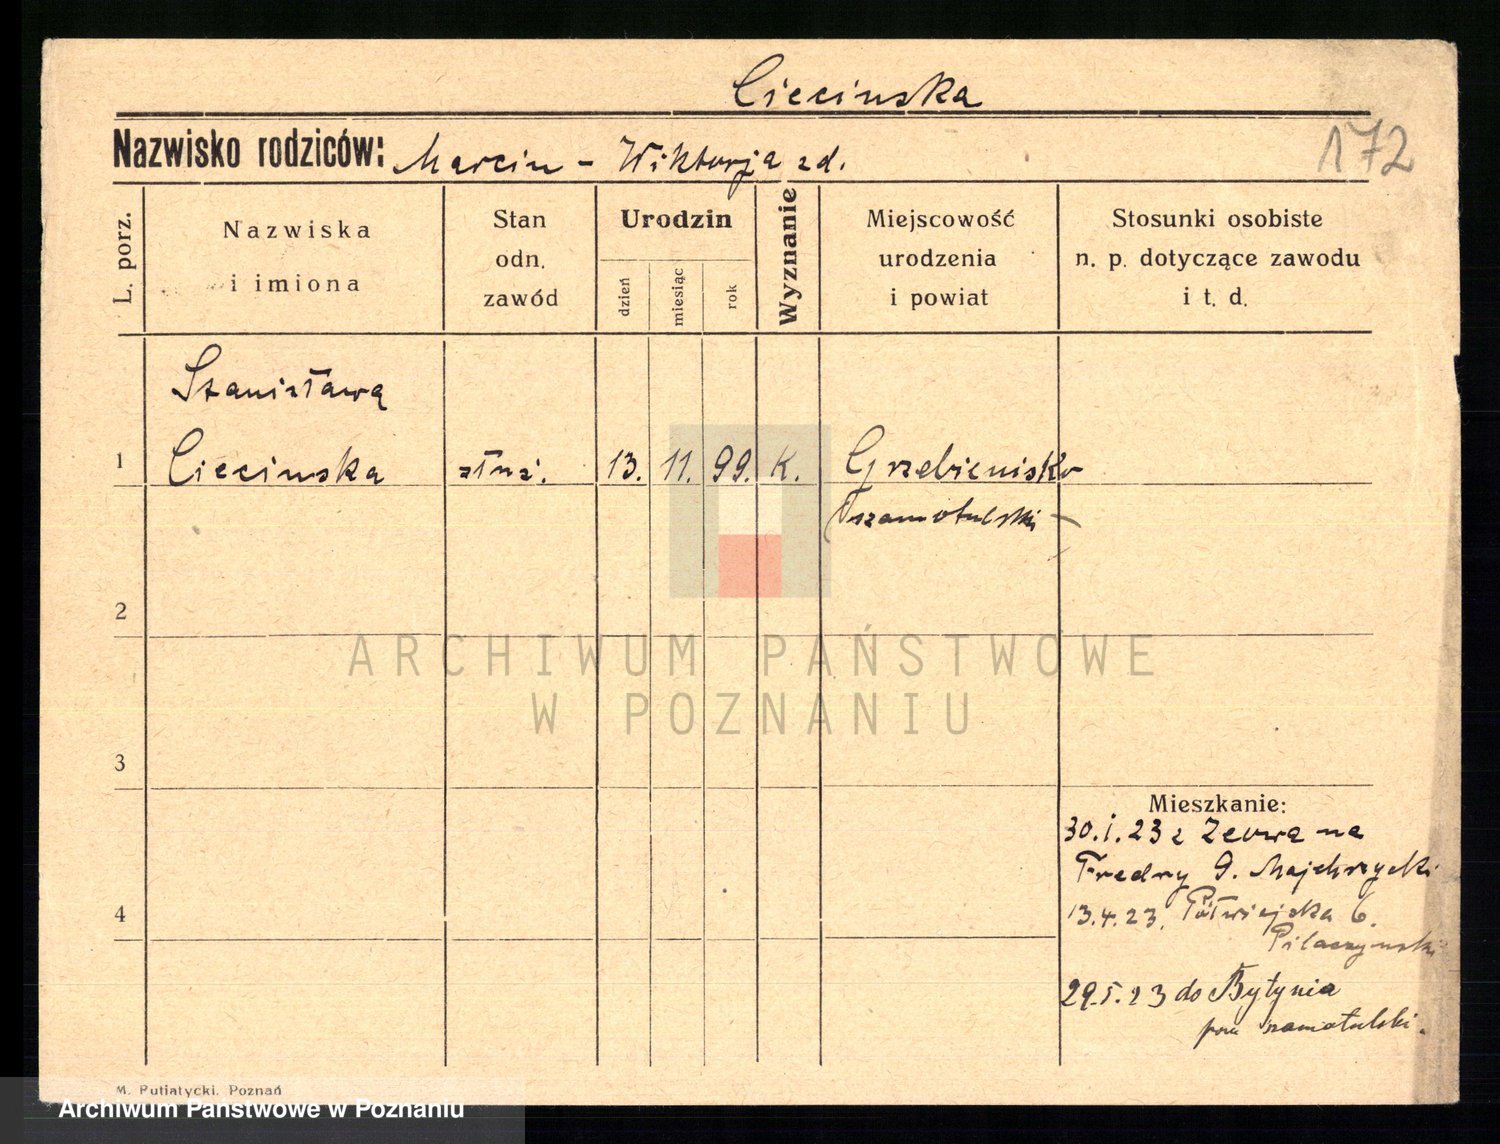 Ciecinska
Nazwisko rodziców: Marcin - Wiktorja zd.
172
L. porz.
Nazwiska
i imiona
Stan
odn.
zawód
Urodzin
dzień
miesiąc
rok
Wyznanie
Miejscowość
urodzenia
i powiat
Stosunki osobiste
n. p. dotyczące zawodu
i t. d.
Stanisława
1 Ciecinska służ. 13. 11. 99. K. Grzebienisko
szamotulski
2
ARCHIWUM PAŃSTWOWE
W POZNANIU
3
Mieszkanie:
30.1.23 z na
Fredry 9. Majchrzycki
4
13.4.23. Półwiejska 6.
Pilaczynski
29.5.23 do Bytynia
pow szamotulski.
M. Putiatycki. Poznań
Archiwum Państwowe w Poznaniu